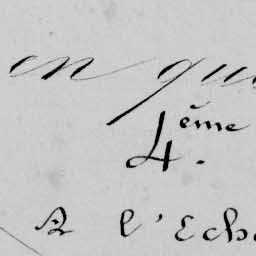 en qu
4.ème
A l'Ech